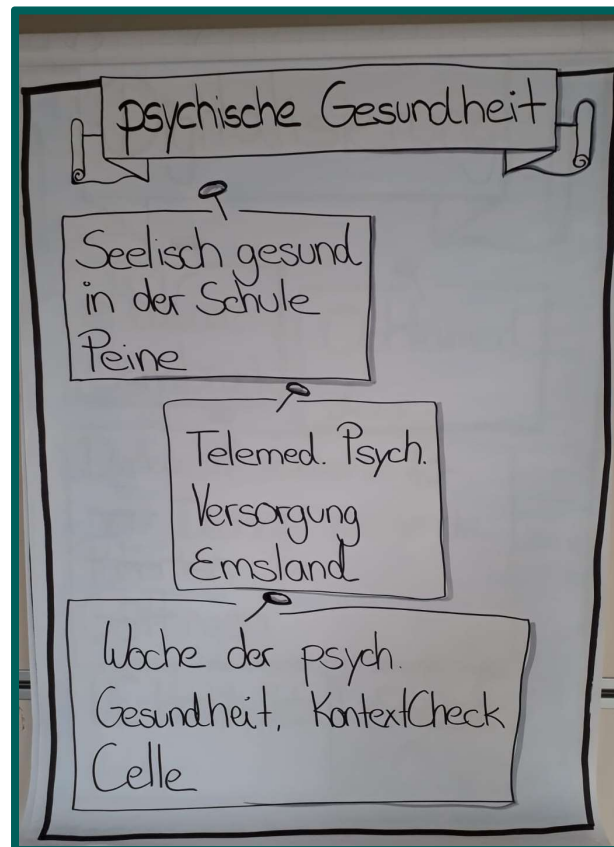 psychische Gesundheit
Seelisch gesund
in der Schule
Peine
Telemed. Psych.
Versorgung
Emsland
Woche der psych.
Gesundheit, KontextCheck
Celle